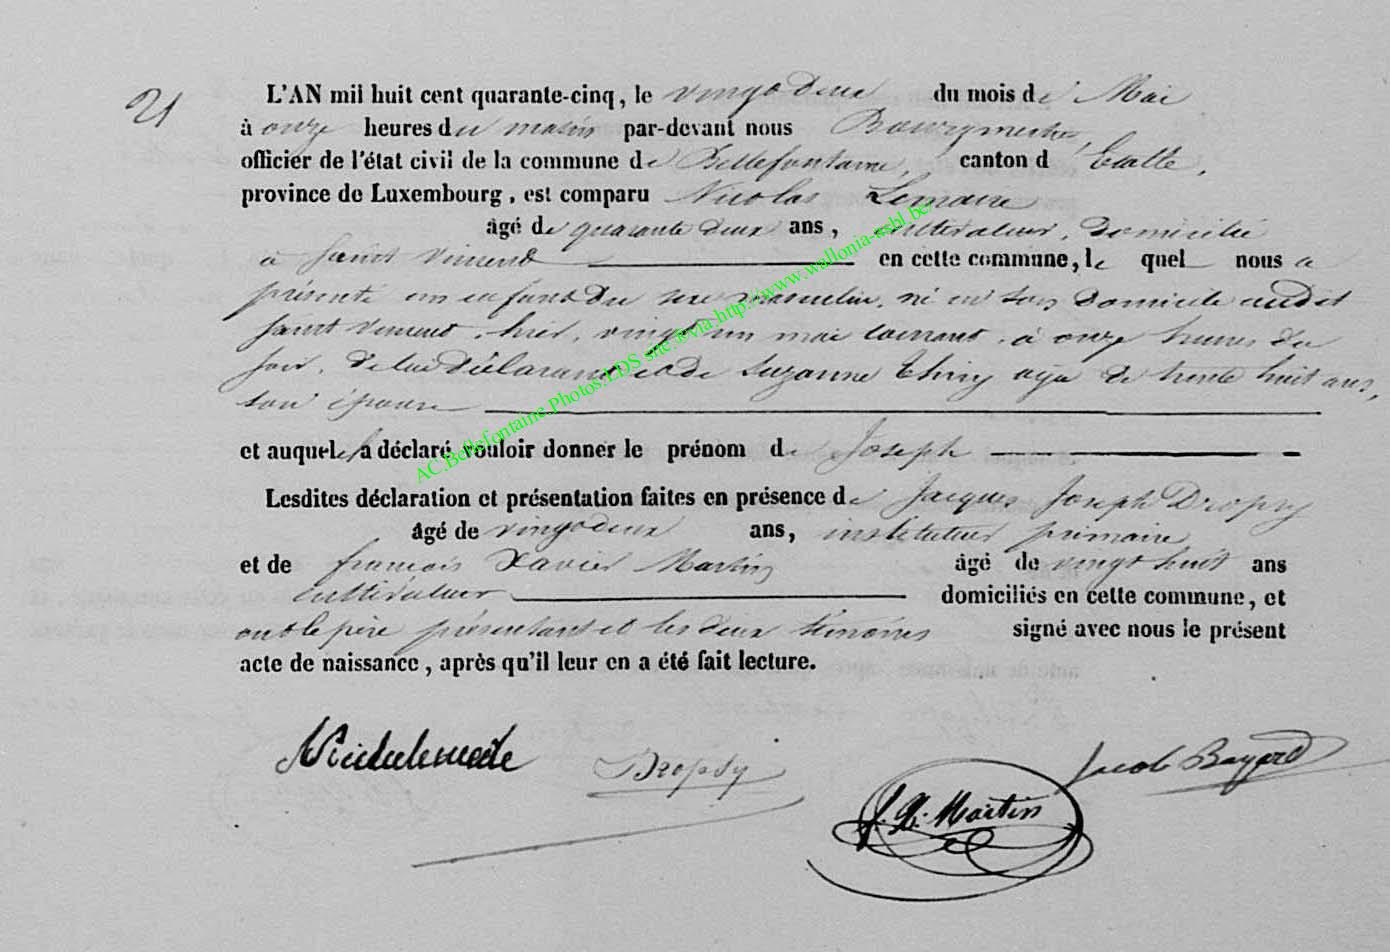 21
L'AN mil huit cent quarante-cinq, le vingt deux du mois de Mai
à onze heures du matin par-devant nous Bourgmestre,
officier de l'état civil de la commune de Bellefontaine, canton d'Etalle,
province de Luxembourg, est comparu Nicolas Lemaire
âgé de quarante deux ans, cultivateur, domicilié
à Saint Vincent en cette commune, le quel nous a
présenté un enfant du sexe masculin, né en son domicile audit
Saint Vincent, hier, vingt un mai courant, à onze heures du
soir, de lui déclarant et de Suzanne Thiry agée de trente huit ans,
son épouse
et auquel il a déclaré vouloir donner le prénom de Joseph
Lesdites déclaration et présentation faites en présence de Jacques Joseph Dropsy
âgé de vingt deux ans, instituteur primaire
et de françois Xavier Martin âgé de vingt huit ans
cultivateur domiciliés en cette commune, et
ont le père présentant et les deux témoins signé avec nous le présent
acte de naissance, après qu'il leur en a été fait lecture.
Dropsy
Jacob Bayard
f. X. Martin
AC.Bellefontaine.Photos.LDS site.®via.http://www.wallonia-asbl.be/